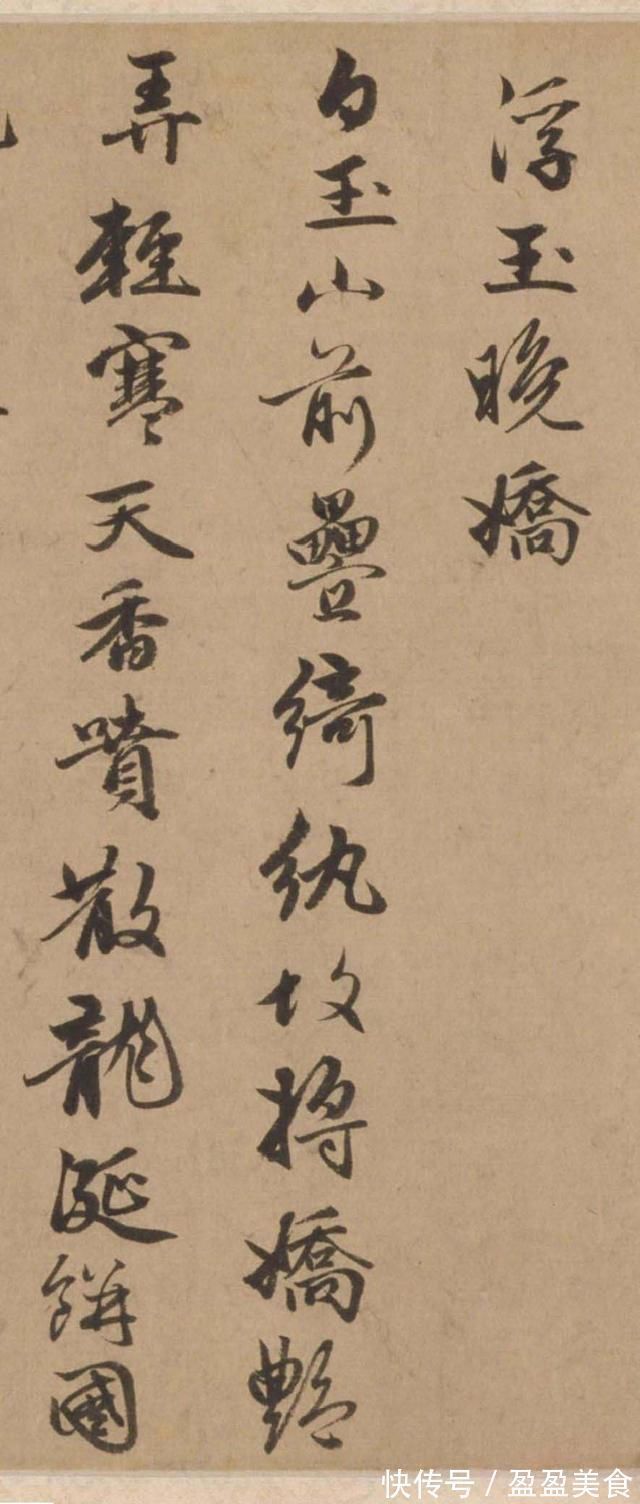 浮玉晚嬌
白玉山前疊綺紈故將嬌艷
弄輕寒天香噴散龍涎餅國
快传号／盈盈美食